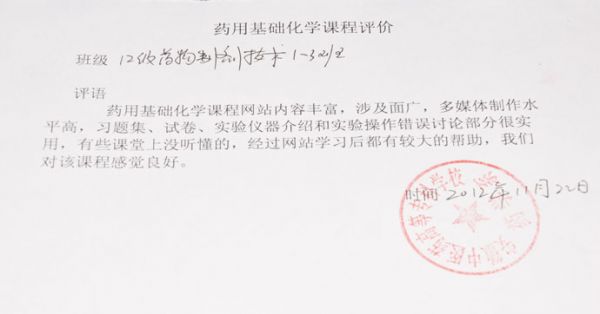 药用基础化学课程评价
班级 12级药物制剂技术1-3班
评语
药用基础化学课程网站内容丰富，涉及面广，多媒体制作水
平高，习题集、试卷、实验仪器介绍和实验操作错误讨论部分很实
用，有些课堂上没听懂的，经过网站学习后都有较大的帮助，我们
对该课程感觉良好。
时间 2012年11月22日
安徽中医药高等专科学校